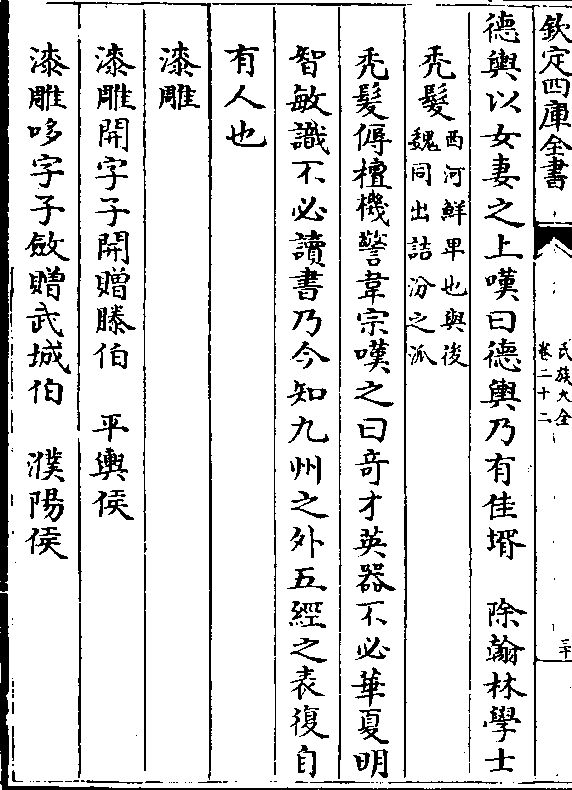 欽定四庫全書
氏族大全
卷二十二
三十
德輿以女妻之上嘆曰德輿乃有佳壻　除翰林學士
禿髮
西河鮮卑也與後
魏同出詰汾之派
禿髮傉檀機警韋宗嘆之曰奇才英器不必華夏明
智敏識不必讀書乃今知九州之外五經之表復自
有人也
漆雕
漆雕開字子開贈滕伯　平輿侯
漆雕哆字子斂贈武城伯　濮陽侯